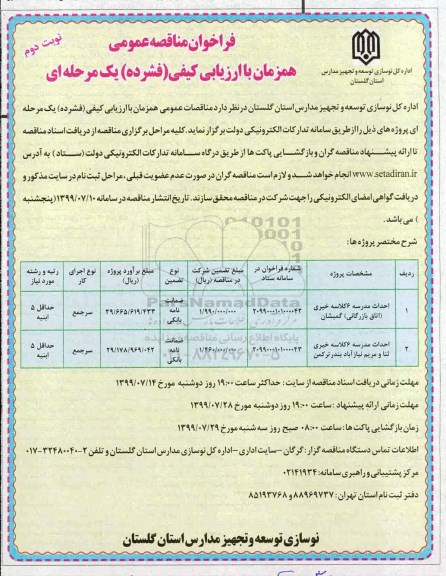 نوبت دوم
فراخوان مناقصه عمومی
همزمان با ارزیابی کیفی (فشرده) یک مرحله ای
اداره کل نوسازی توسعه و تجهیز مدارس
استان گلستان
اداره کل نوسازی توسعه و تجهیز مدارس استان گلستان در نظر دارد مناقصات عمومی همزمان با ارزیابی کیفی (فشرده) یک مرحله
ای پروژه های ذیل را از طریق سامانه تدارکات الکترونیکی دولت برگزار نماید. کلیه مراحل برگزاری مناقصه از دریافت اسناد مناقصه
تا ارائه پیشنهاد مناقصه گران و بازگشایی پاکت ها از طریق درگاه سامانه تدارکات الکترونیکی دولت (ستاد) به آدرس
www.setadiran.ir انجام خواهد شد و لازم است مناقصه گران در صورت عدم عضویت قبلی، مراحل ثبت نام در سایت مذکور و
دریافت گواهی امضای الکترونیکی را جهت شرکت در مناقصه محقق سازند. تاریخ انتشار مناقصه در سامانه ۱۳۹۹/۰۷/۱۰ (پنجشنبه
) می باشد.
شرح مختصر پروژه ها:
ردیف | مشخصات پروژه | شماره فراخوان در سامانه ستاد | مبلغ تضمین شرکت در مناقصه (ریال) | نوع تضمین | مبلغ برآورد پروژه (ریال) | نوع اجرای کار | رتبه و رشته مورد نیاز
۱ | احداث مدرسه ۶کلاسه خیری (اتاق بازرگانی) گمیشان | ضمانت نامه بانکی | ۳۹/۶۶۵/۶۱۹/۴۳۳ | سرجمع | حداقل ۵ ابنیه
۲ | احداث مدرسه ۶کلاسه خیری ثنا و مریم نیازآباد بندرترکمن | ضمانت نامه بانکی | ۲۹/۱۷۸/۹۶۹/۰۴۲ | سرجمع | حداقل ۵ ابنیه
مهلت زمانی دریافت اسناد مناقصه از سایت: حداکثر ساعت ۱۹:۰۰ روز دوشنبه مورخ ۱۳۹۹/۰۷/۱۴
مهلت زمانی ارائه پیشنهاد: ساعت ۱۹:۰۰ روز دوشنبه مورخ ۱۳۹۹/۰۷/۲۸
زمان بازگشایی پاکت ها: ساعت ۰۸:۰۰ صبح روز سه شنبه مورخ ۱۳۹۹/۰۷/۲۹
اطلاعات تماس دستگاه مناقصه گزار: گرگان -سایت اداری -اداره کل نوسازی مدارس استان گلستان و تلفن ۲-۳۲۴۸۰۰۴۰-۰۱۷
مرکز پشتیبانی و راهبری سامانه: ۰۲۱۴۱۹۳۴
دفتر ثبت نام استان تهران: ۸۸۹۶۹۷۳۷ و ۸۵۱۹۳۷۶۸
نوسازی توسعه و تجهیز مدارس استان گلستان